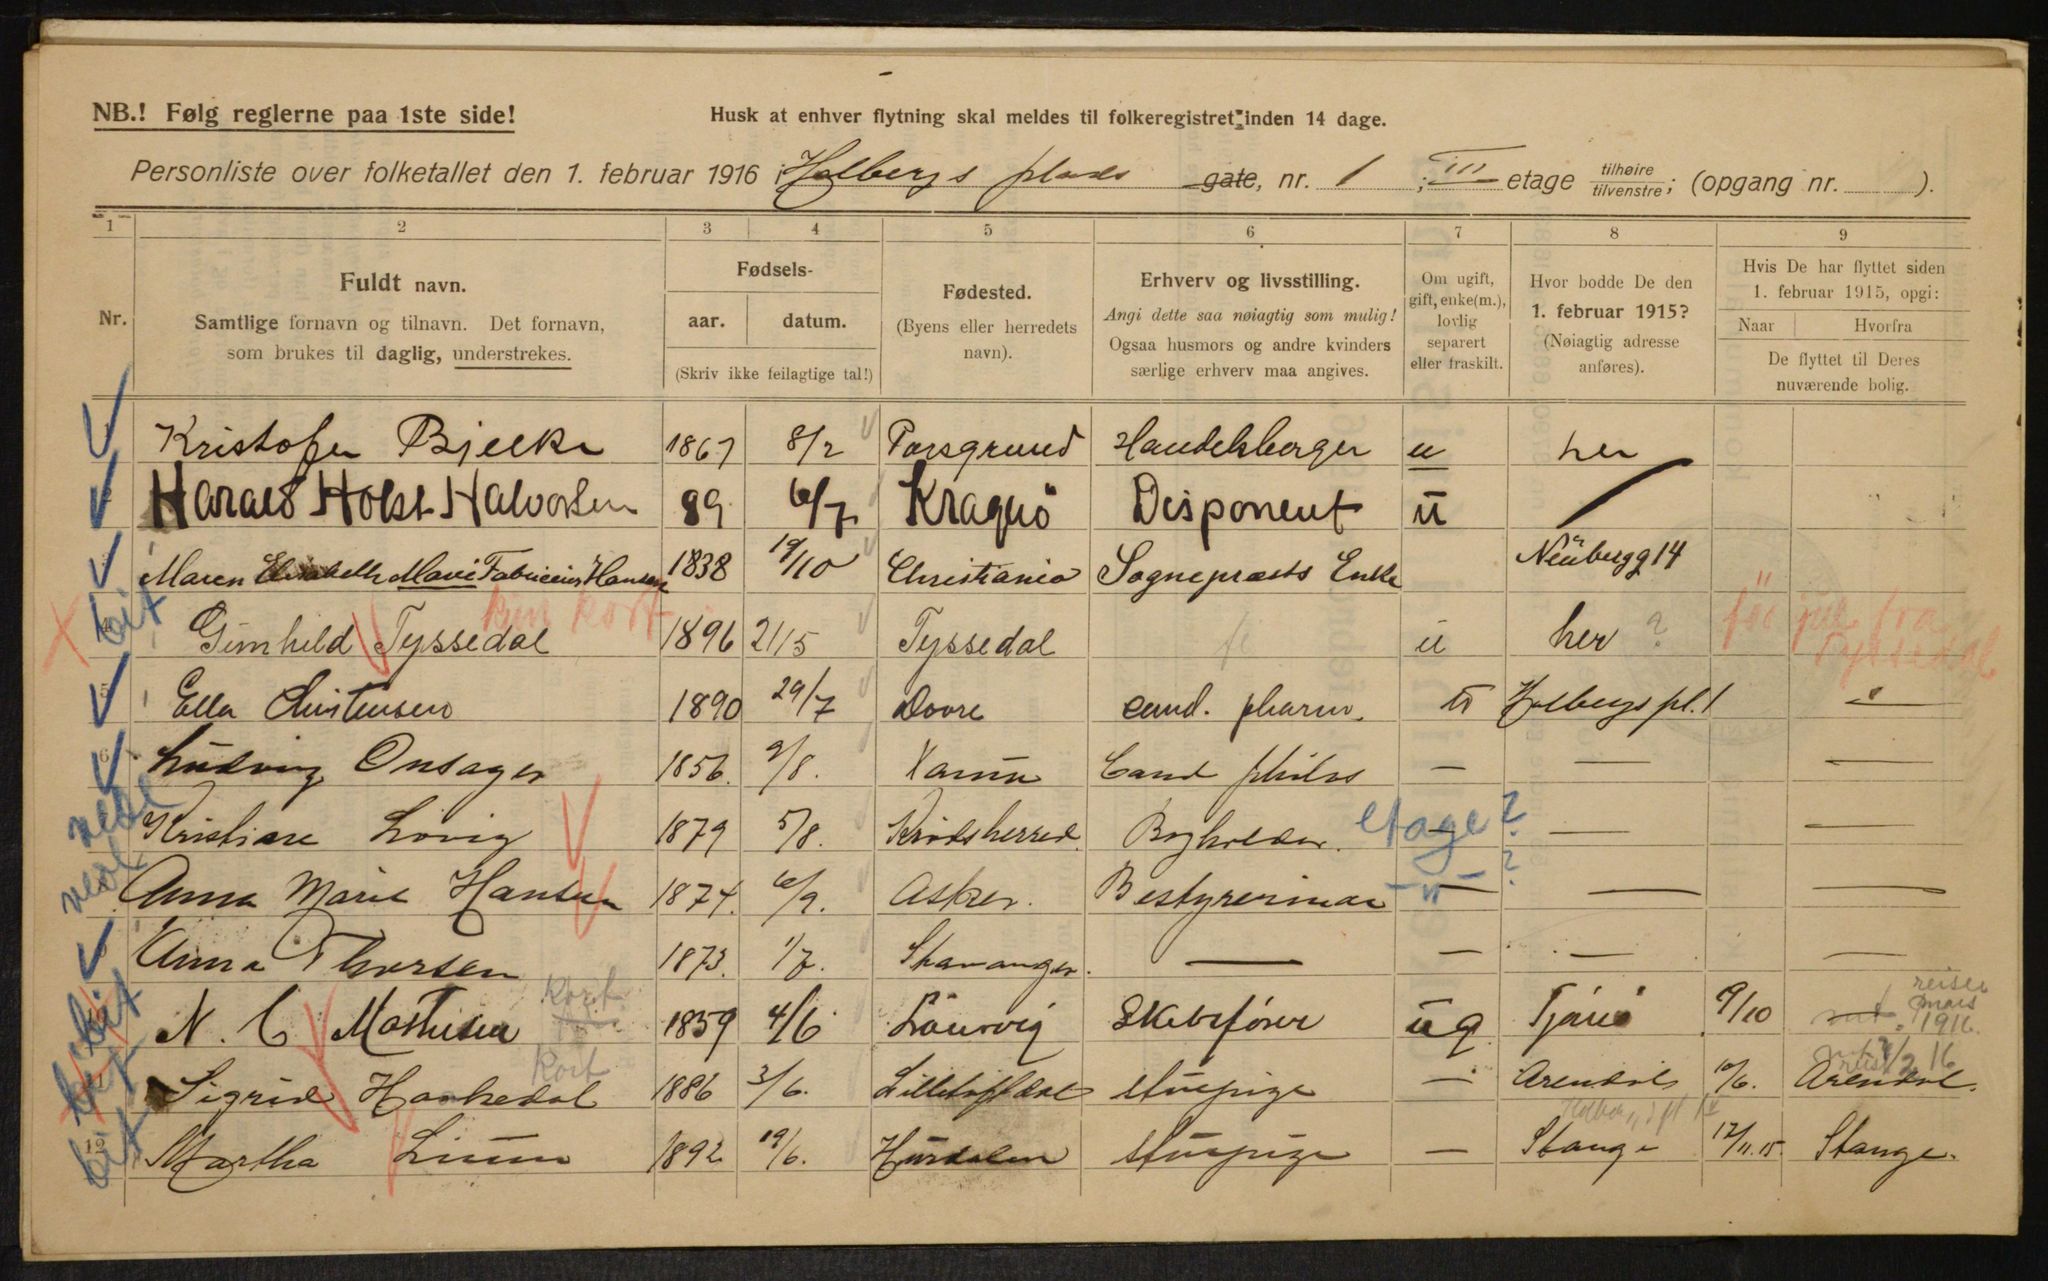 NB.! Følg reglerne paa 1ste side!
Husk at enhver flytning skal meldes til folkeregistret inden 14 dage.
Personliste over folketallet den 1. februar 1916 i Holbergs plads gate, nr. 1 ; III etage tilhøire tilvenstre; (opgang nr. ).
1 2 3 4 5 6 7 8 9
Nr.
Fuldt navn.
Samtlige fornavn og tilnavn. Det fornavn,
som brukes til daglig, understrekes.
Fødsels-
aar. datum.
(Skriv ikke feilagtige tal!)
Fødested.
(Byens eller herredets
navn).
Erhverv og livsstilling.
Angi dette saa nøiagtig som mulig!
Ogsaa husmors og andre kvinders
særlige erhverv maa angives.
Om ugift,
gift, enke(m.),
lovlig
separert
eller fraskilt.
Hvor bodde De den
1. februar 1915?
(Nøiagtig adresse
anføres).
Hvis De har flyttet siden
1. februar 1915, opgi:
Naar Hvorfra
De flyttet til Deres
nuværende bolig.
Kristofer Bjelke 1867 8/2 Porsgrund u her
Harald Holst Halvorsen 89 6/7 Kragerö Disponent u
Maren Elisabeth Marie Fabricius Hansen 1838 19/10 Christiania Sogneprests Enke Neubergg 14
bit Gunhild Tyssedal 1896 21/5 Tyssedal u her ? før jul fra Tyssedal
5 Ella Christensen 1890 29/7 Dovre cand. pharm. u Holbergs pl. 1 "
6 Ludvig Onsager 1856. 9/8. Cand philos — — —
Kristiane Lovig 1879 5/8. Krødsherred Bogholder. etage? — —
Anna Marie Hansen 1874. 6/9. Asker. Bestyrerinde — " — ? — —
Anna Thorsen 1873. 1/7. Stavanger. — — — —
bit N. C Mathisen kort 1859 4/6 Laurvig Skibsfører ug Tjømø 9/10 reiser mars 1916.
Sigrid kort 1886 3/6. stuepige — Arendal 10/6. Arendal.
bit 12 Martha 1892 19/6. Hurdalen stuepige — Stange 12/11.15. Stange.